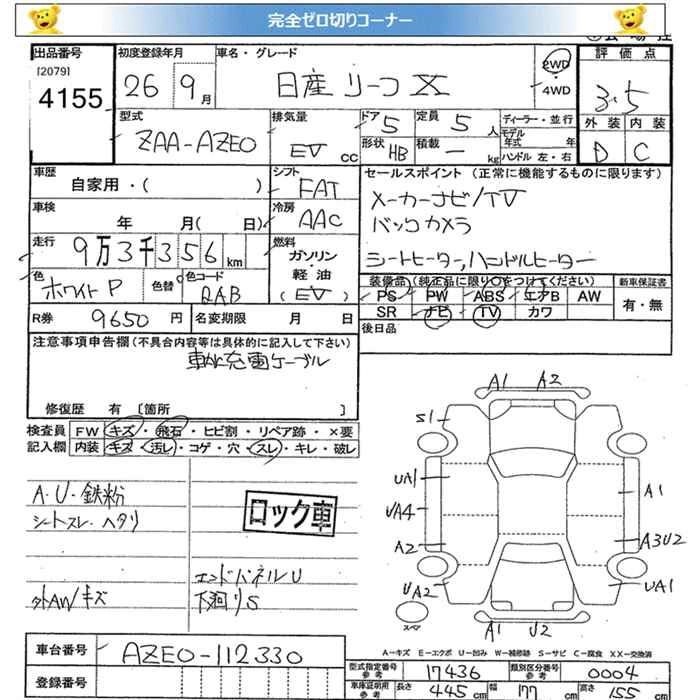 完全ゼロ切りコーナー
出品番号 初度登録年月 車名・グレード 2WD ・ 4WD 評価点
[2079] 4155 26 9月 日産 リーフ X 3.5
型式 排気量 ドア 定員 ディーラー・並行 外装 内装
ZAA-AZE0 EV cc 5 5人 モデル年式 年
形状 HB 積載 ー kg ハンドル 左・右 D C
車歴 シフト セールスポイント (正常に機能するものに限ります)
自家用・( ) FAT メーカーナビ/TV
車検 冷房 バックカメラ
年 月( 日) AAC
走行 燃料 シートヒーター,ハンドルヒーター
9万3千356km ガソリン・軽・油 (EV)
色 色替 色コード 装備品 (純正品に限り○をつけてください) 新車保証書
ホワイトP QAB PS PW ABS エアB AW 有・無
R券 9650円 名変期限 月 日 SR ナビ TV カワ
注意事項申告欄 (不具合内容等は具体的に記入して下さい) 後日品
車内に充電ケーブル
修復歴 有 [箇所 ]
検査員 FW キズ・飛石・ヒビ割・リペア跡・×要
記入欄 内装 キズ・汚レ・コゲ・穴・スレ・キレ・破レ
A1 A2
S1
UA1 A1
UA4
A2 A3U2
UA2 UA1
スペア
A1 U2
A・U・鉄粉
シートスレ・ヘタリ ロック車
エンドパネルU
外AWキズ 下廻りS
A-キズ E-エクボ U-凹み W-補修跡 S-サビ C-腐食 XX-交換済
車台番号 AZE0-112330
型式指定番号 参考 17436 類別区分番号 参考 0004
登録番号 車庫証明用 参考 長さ 445cm 幅 177cm 高さ 155cm